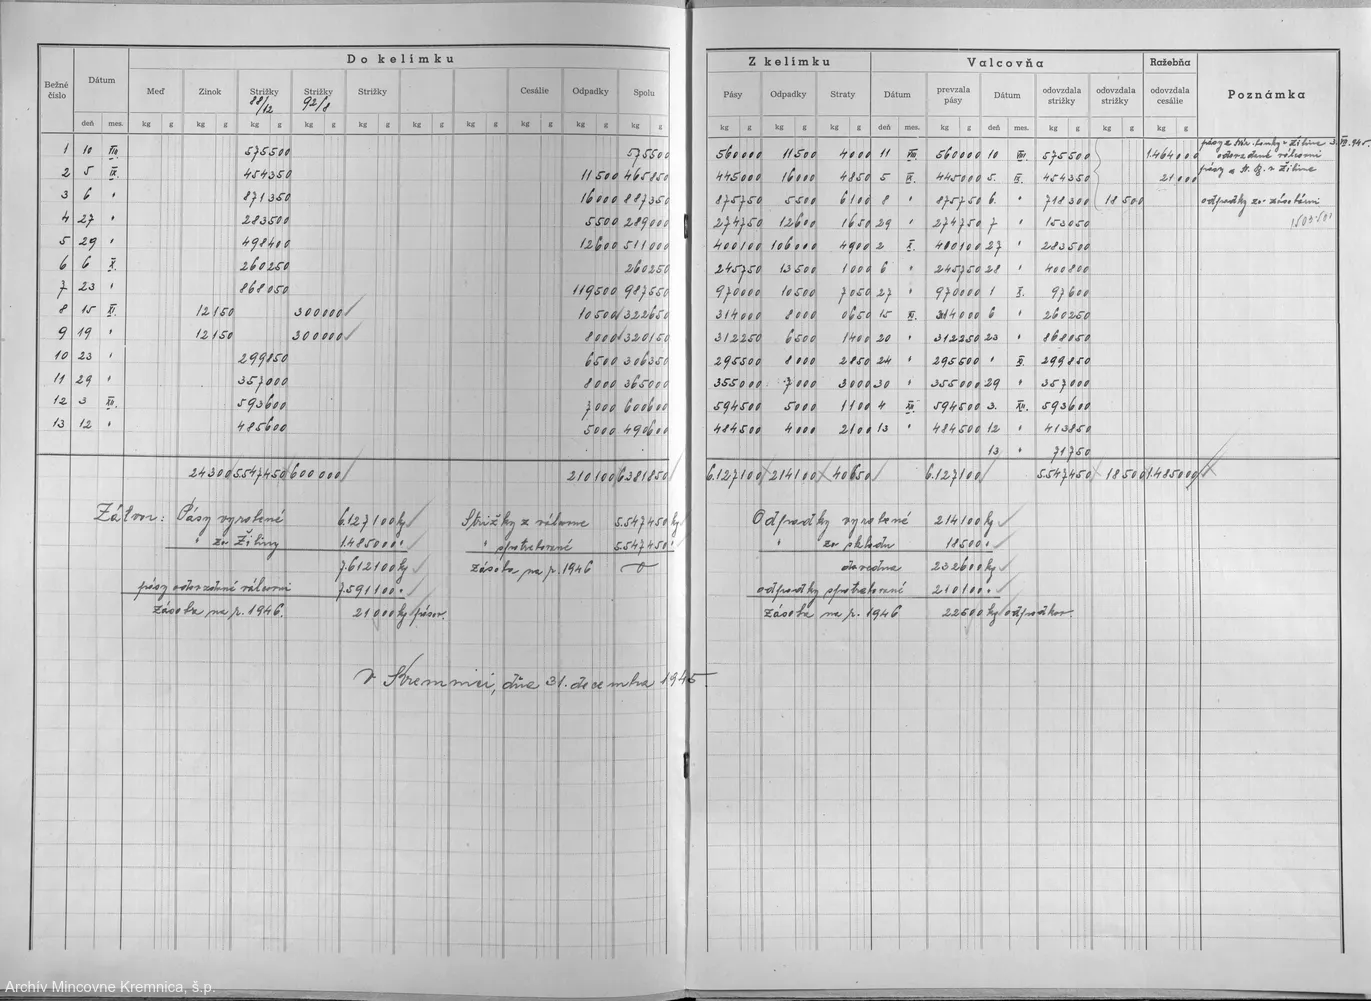 Do kelímku
Bežné číslo Dátum Meď Zinok Strižky 88/12 Strižky 92/8 Strižky Cesálie Odpadky Spolu
deň mes. kg g kg g kg g kg g kg g kg g kg g kg g kg g kg g
1 10 VIII. 575500 575500
2 5 IX. 454350 11500 465850
3 6 " 871350 16000 887350
4 27 " 283500 5500 289000
5 29 " 498400 12600 511000
6 6 X. 260250 260250
7 23 " 868050 119500 987550
8 15 XI. 12150 300000 10500 322650
9 19 " 12150 300000 8000 320150
10 23 " 299850 6500 306350
11 29 " 357000 8000 365000
12 3 XII. 593600 7000 600600
13 12 " 485600 5000 490600
24300 5.547450 600000 210100 6381850
Zátvor: Pásy vyrobené 6.127100 kg
" zo Žiliny 1.485000 "
7.612100 kg
pásy odovzdané válcovni 7.591100 "
Zásoba na r. 1946. 21000 kg pásov.
Strižky z válcovne 5.547450 kg
" spotrebované 5.547450 "
zásoba na r. 1946 0
V Kremnici, dňa 31. decembra 1945.
Z kelímku Valcovňa Ražebňa Poznámka
Pásy Odpadky Straty Dátum prevzala pásy Dátum odovzdala strižky odovzdala strižky odovzdala cesálie
kg g kg g kg g deň mes. kg g deň mes. kg g kg g kg g
560000 11500 4000 11 VIII. 560000 10 VIII. 575500 1.464000
445000 16000 4850 5 IX. 445000 5. IX. 454350 21000
875750 5500 6100 8 " 875750 6. " 718300 18500 odpadky zo zásobárni
274750 12600 1650 29 " 274750 7 " 153050
400100 106000 4900 2 X. 400100 27 " 283500
245750 13500 1000 6 " 245750 28 " 400800
970000 10500 7050 27 " 970000 1 X. 97600
314000 8000 0650 15 XI. 314000 6 " 260250
312250 6500 1400 20 " 312250 23 " 868050
295500 8000 2850 24 " 295500 " XI. 299850
355000 7000 3000 30 " 355000 29 " 357000
594500 5000 1100 4 XII. 594500 3. XII. 593600
484500 4000 2100 13 " 484500 12 " 413850
13 " 71750
6.127100 214100 40650 6.127100 5.547450 18500 1.485000
Odpadky vyrobené 214100 kg
" zo skladu 18500 "
dovedna 232600 kg
odpadky spotrebované 210100 "
Zásoba na r. 1946 22500 kg odpadkov.
Archív Mincovne Kremnica, š.p.